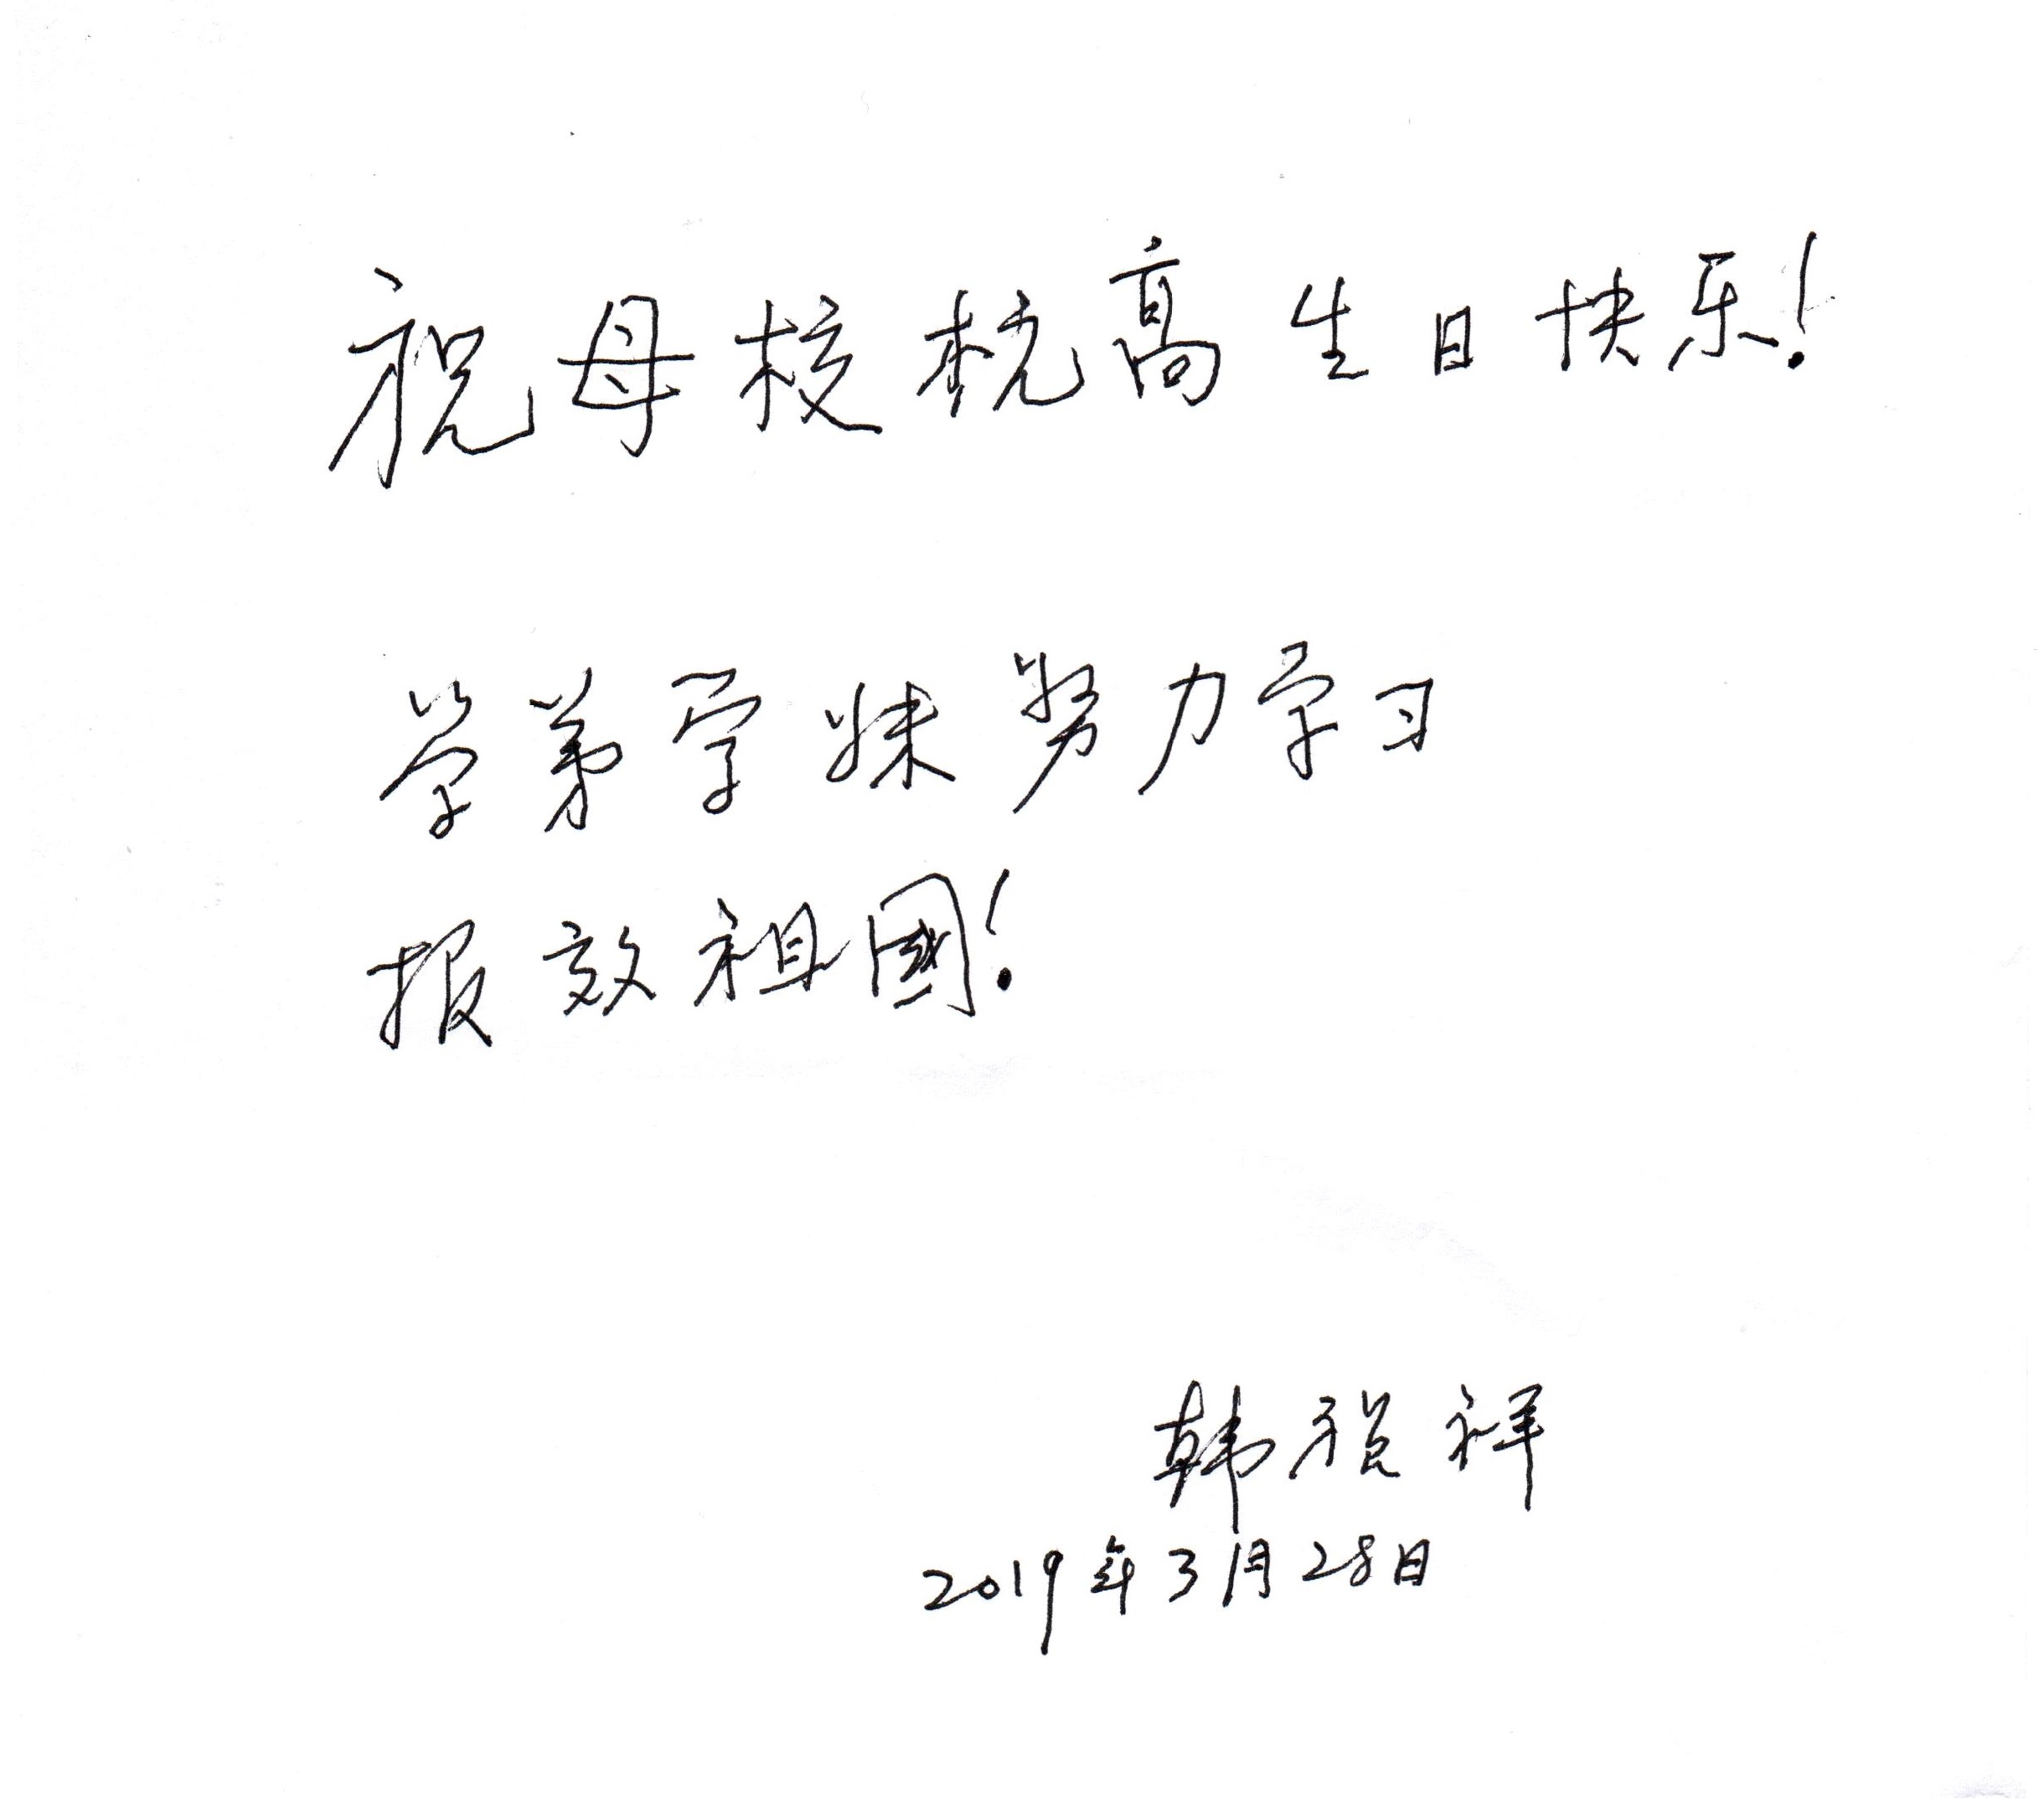 祝母校杭高生日快乐!
学弟学妹努力学习
报效祖國!
韩祯祥
2019年3月28日